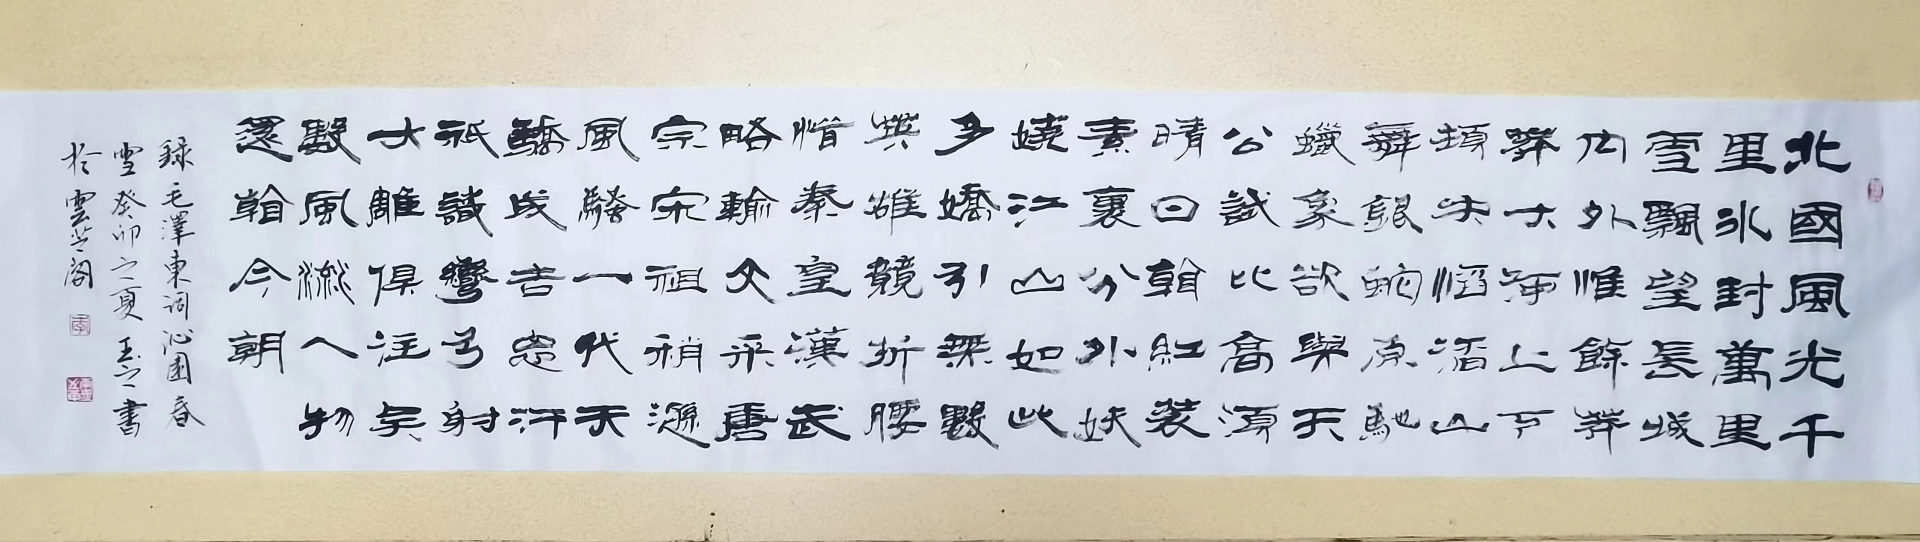 北國風光千
里冰封萬里
雪飄望長城
内外惟餘莽
莽大河上下
頓失滔滔山
舞銀蛇原馳
蠟象欲與天
公試比高須
晴日看紅裝
素裹分外妖
嬈江山如此
多嬌引無數
英雄競折腰
惜秦皇漢武
略輸文采唐
宗宋祖稍遜
風騷一代天
驕成吉思汗
祇識彎弓射
大雕俱往矣
數風流人物
還看今朝
錄毛澤東詞沁園春
雪癸卯之夏玉之書
於雲芝閣